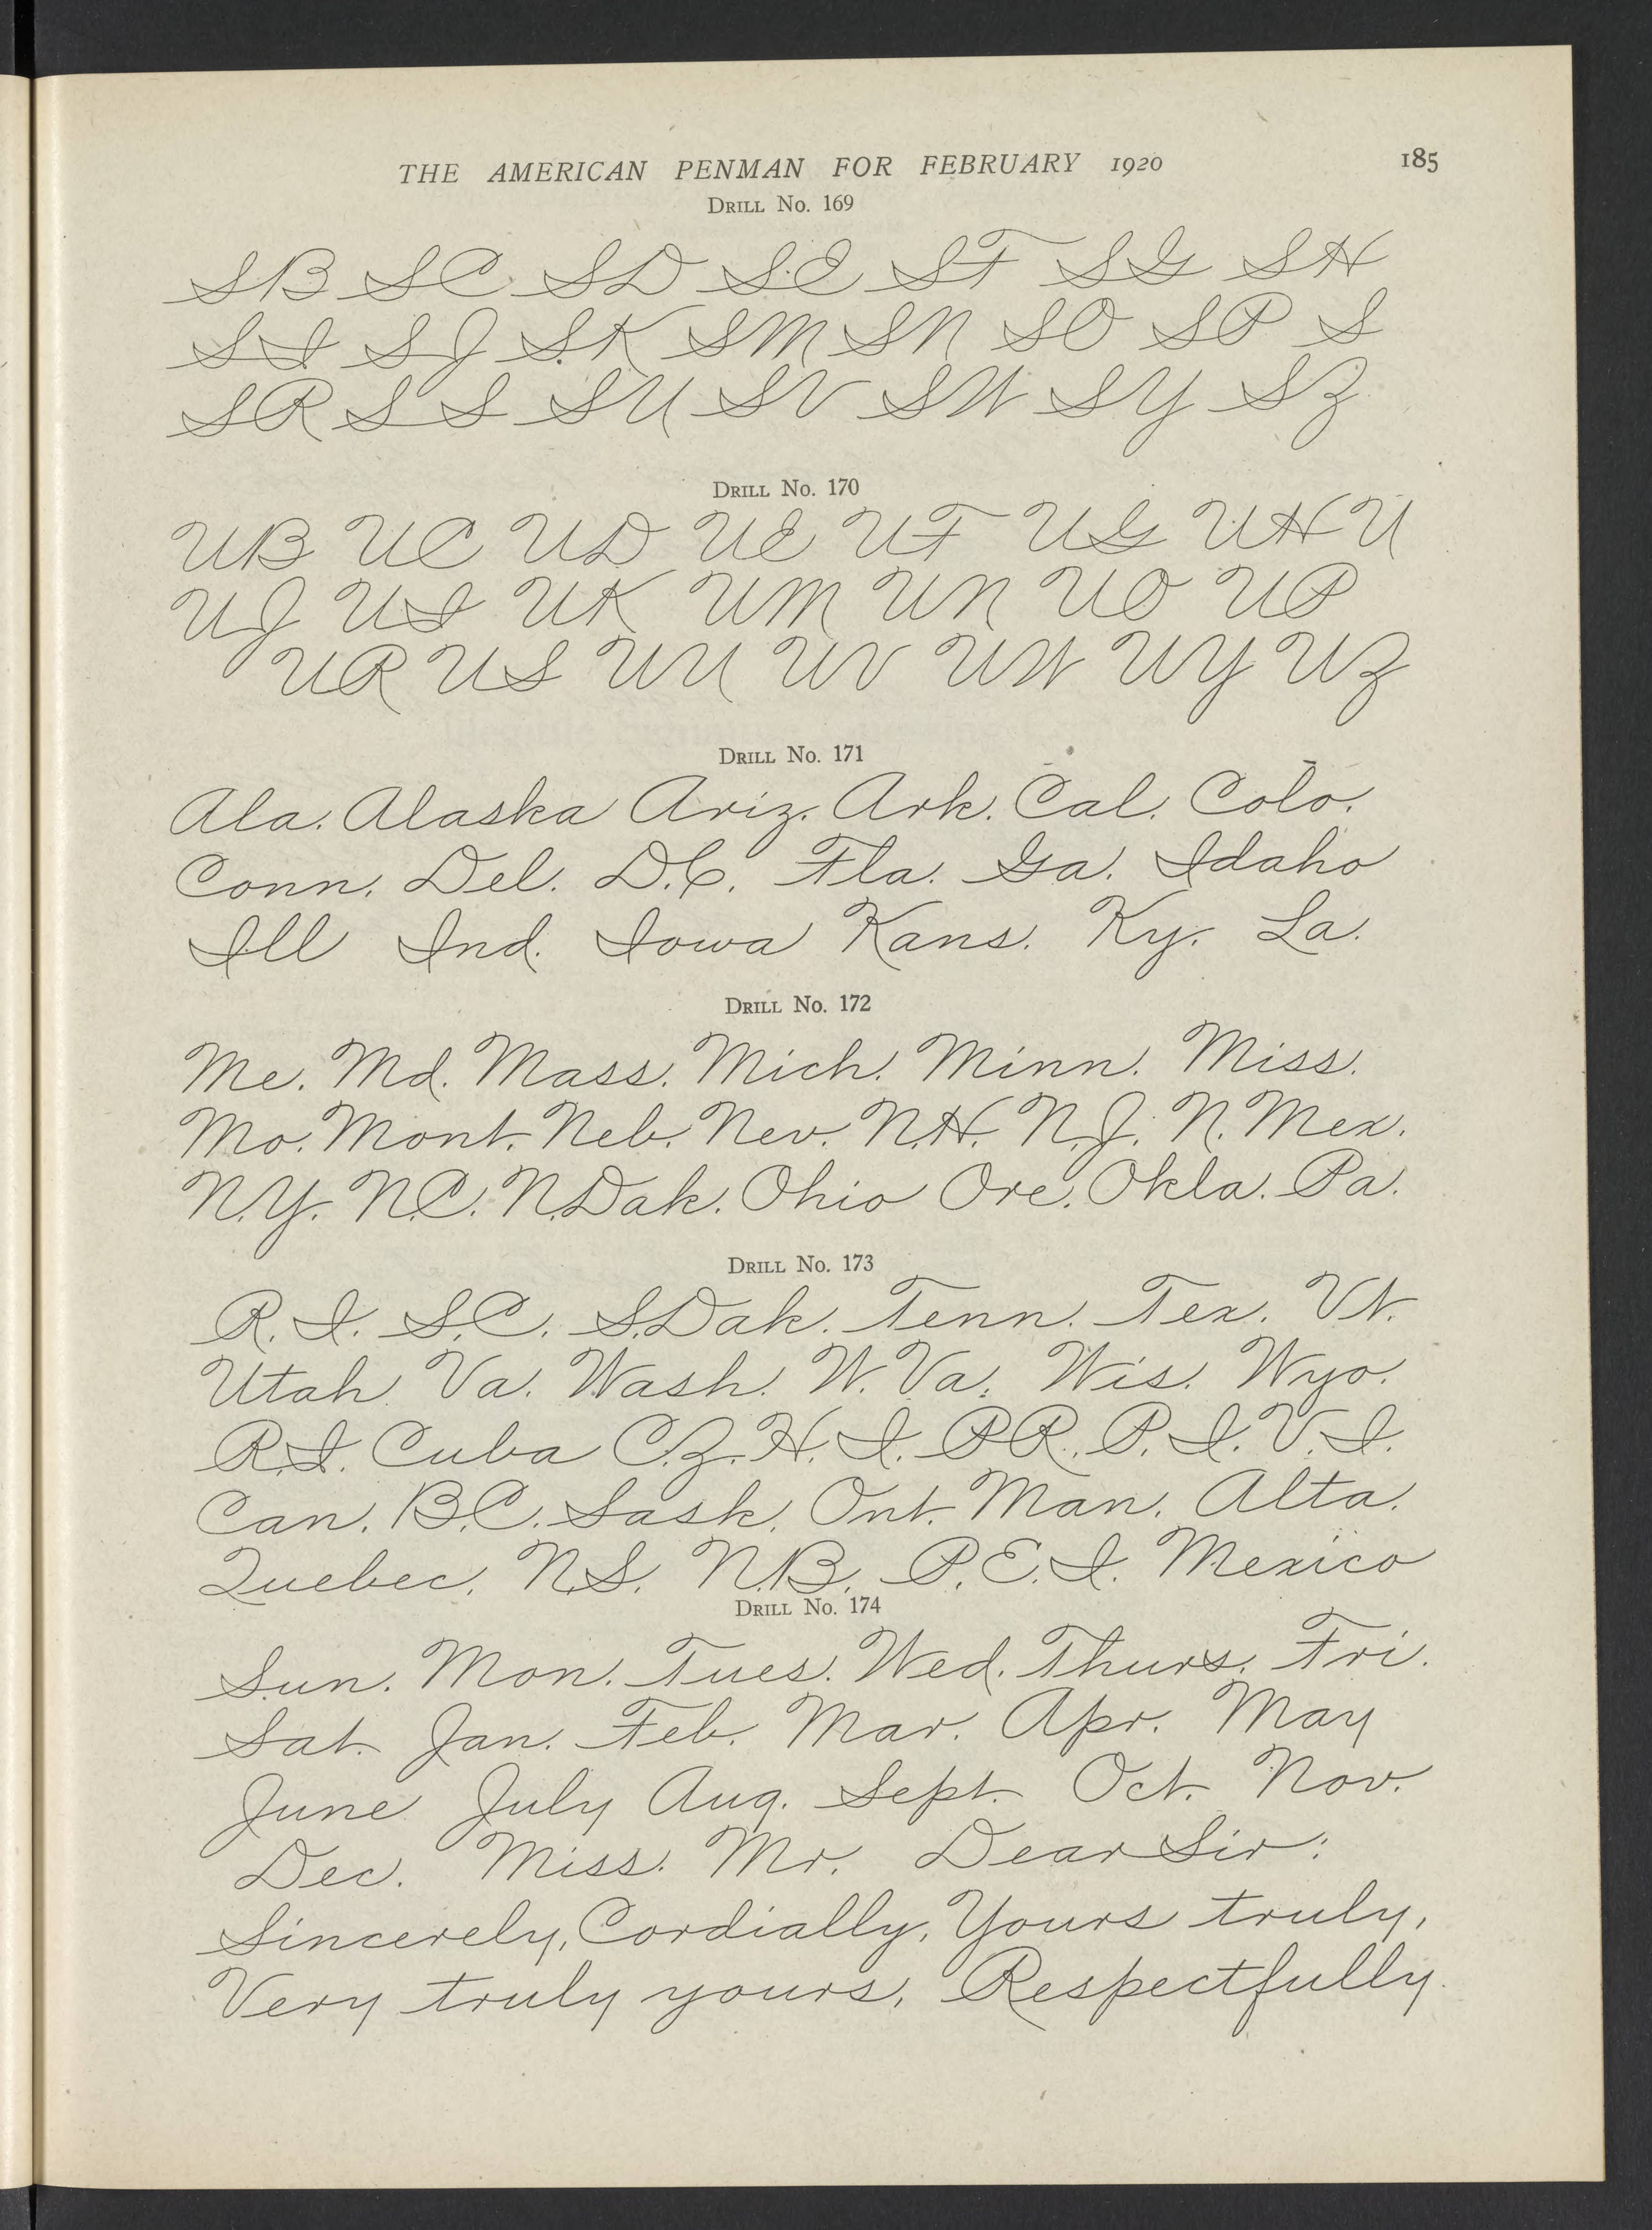 THE AMERICAN PENMAN FOR FEBRUARY 1920 185
DRILL No. 169
SB SC SD SE SF SG SH
SI SJ SK SM SN SO SP S
SR SS SU SV SW SY SZ
DRILL No. 170
UB UC UD UE UF UG UH U
UJ UI UK UM UN UO UP
UR US UU UV UW UY UZ
DRILL No. 171
Ala. Alaska Ariz. Ark. Cal. Colo.
Conn. Del. D.C. Fla. Ga. Idaho
Ill Ind. Iowa Kans. Ky. La.
DRILL No. 172
Me. Md. Mass. Mich. Minn. Miss.
Mo. Mont. Neb. Nev. N.H. N.J. N. Mex.
N.Y. N.C. N.Dak. Ohio Ore. Okla. Pa.
DRILL No. 173
R.I. S.C. S.Dak. Tenn. Tex. Vt.
Utah Va. Wash. W. Va. Wis. Wyo.
R.I. Cuba C.Z. H.I. PR. P.I. V.I.
Can. B.C. Sask. Ont. Man. Alta.
Quebec. N.S. N.B. P.E.I. Mexico
DRILL No. 174
Sun. Mon. Tues. Wed. Thurs. Fri.
Sat. Jan. Feb. Mar. Apr. May
June July Aug. Sept. Oct. Nov.
Dec. Miss. Mr. Dear Sir:
Sincerely, Cordially, Yours truly,
Very truly yours, Respectfully.